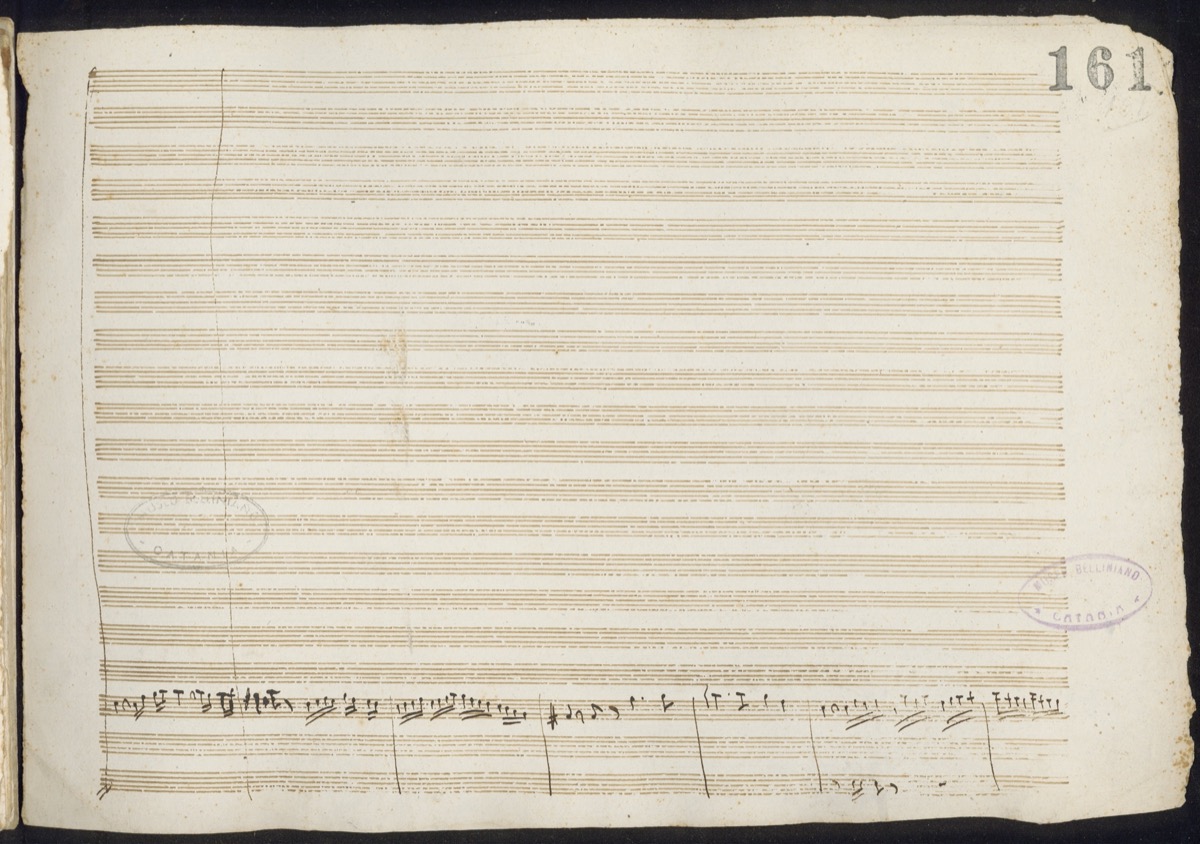 161
MUSEO BELLINIANO
CATANIA
MUSEO BELLINIANO
CATANIA